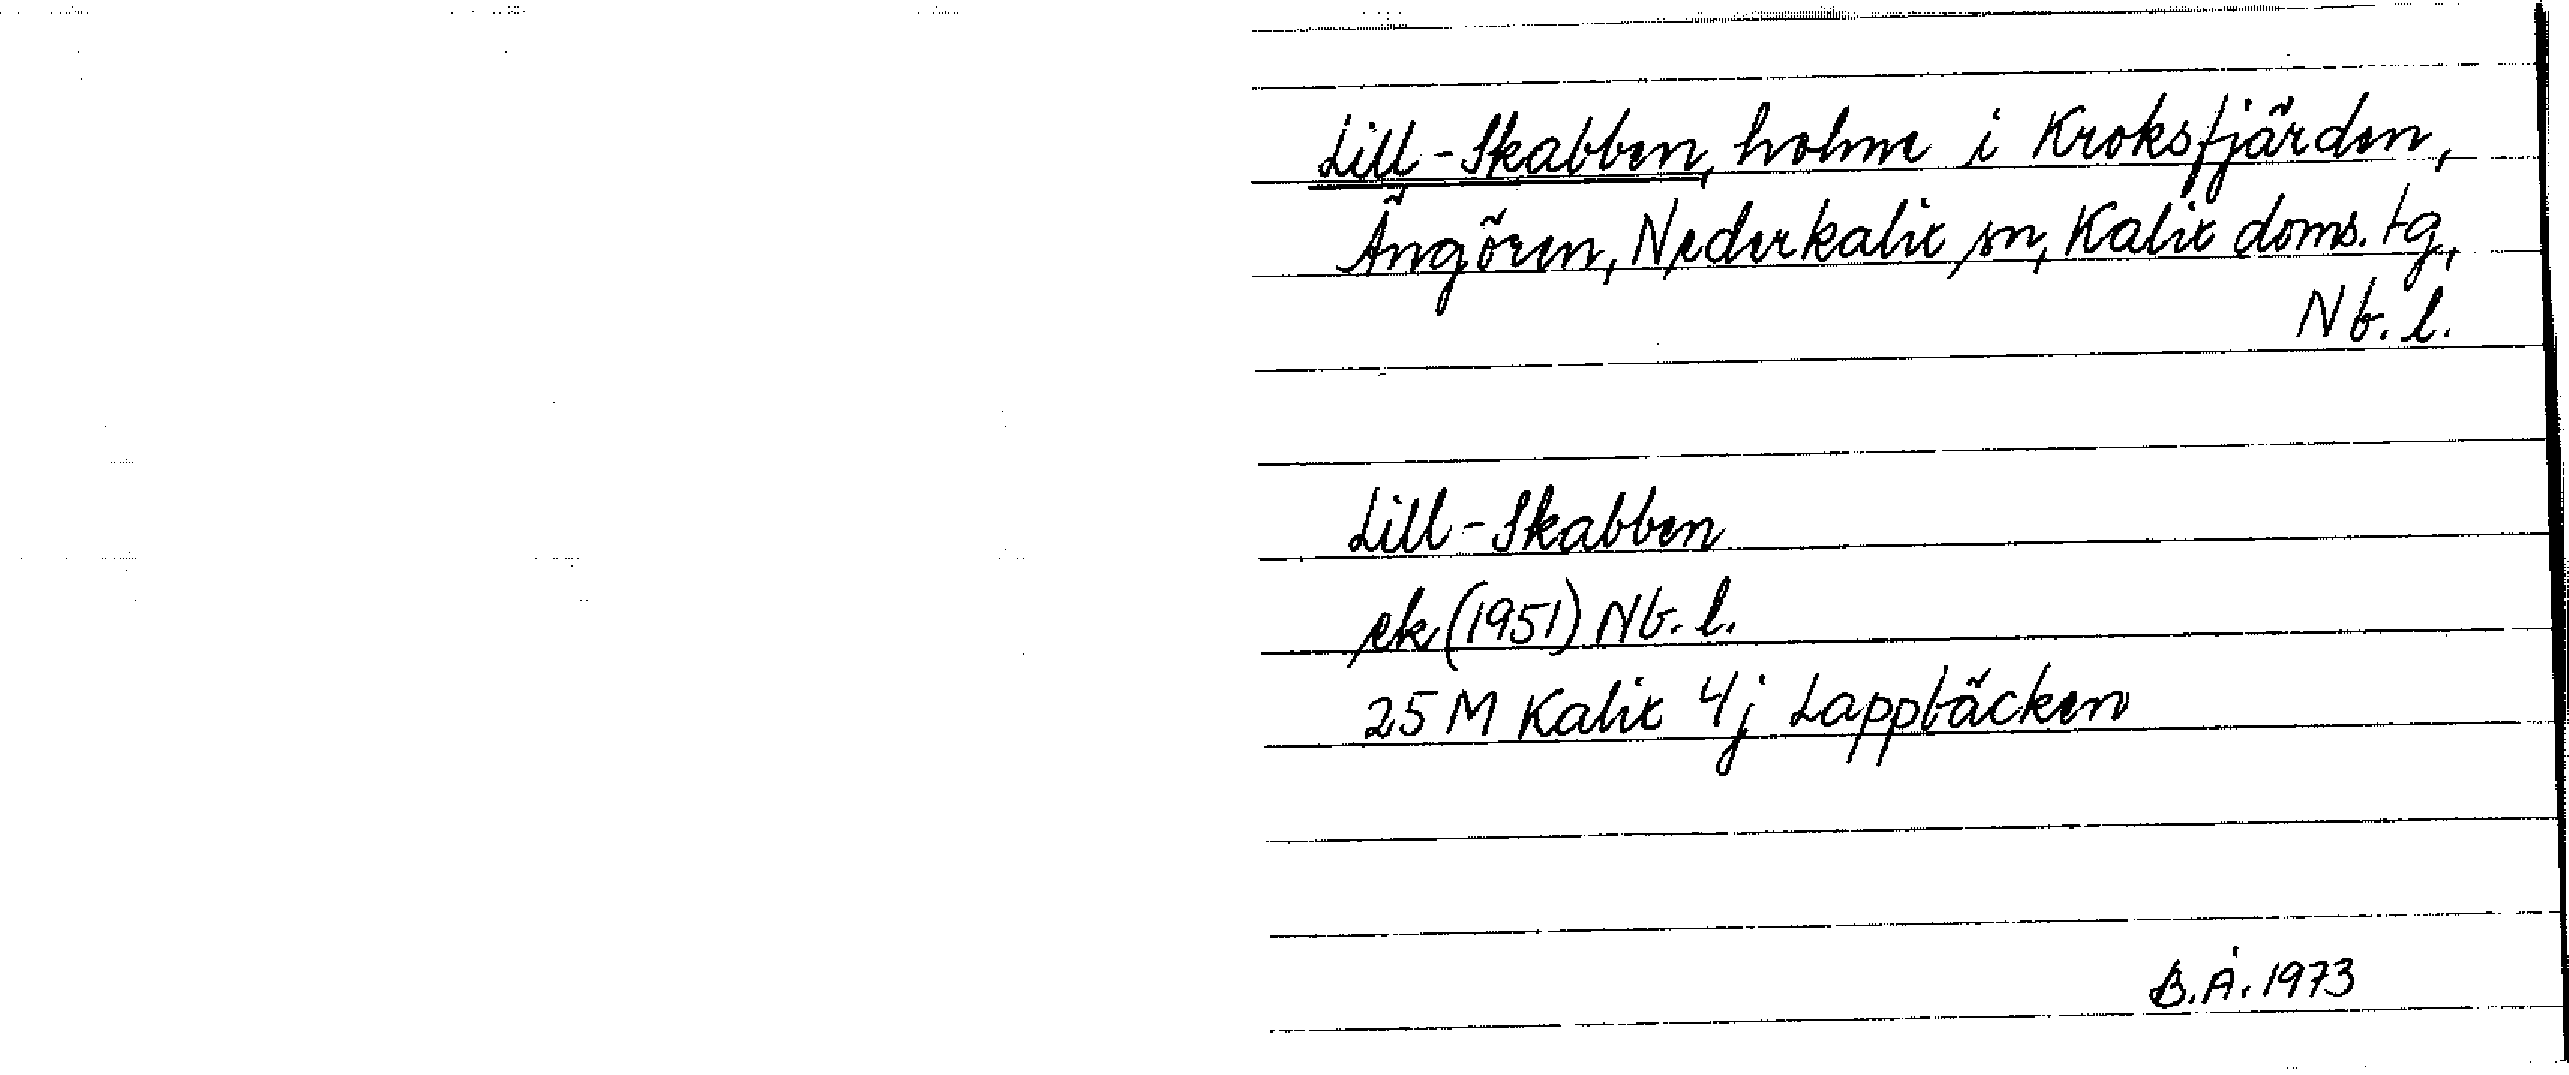 Lill-Skabben, holme i Kroksfjärden,
Ängören, Nederkalix sn, Kalix doms. tg,
Nb. l.
Lill-Skabben
ek (1951) Nb. l.
25 M Kalix 4j Lappbäcken
B.Å. 1973